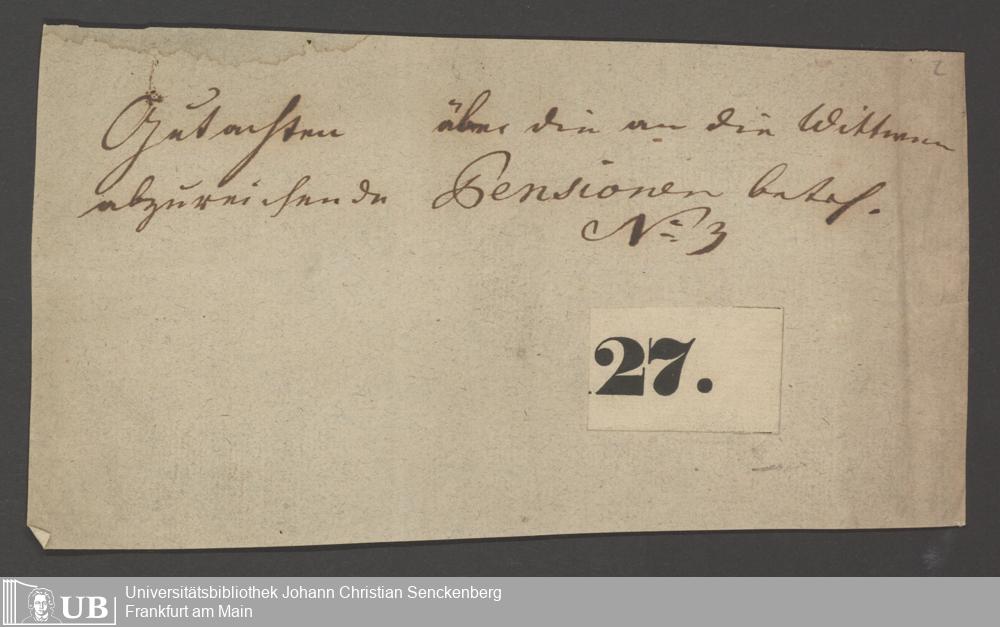 2
Gutachten über die an die Wittwen
abzureichende Pensionen betrf.
No 3
27.
UB Universitätsbibliothek Johann Christian Senckenberg
Frankfurt am Main